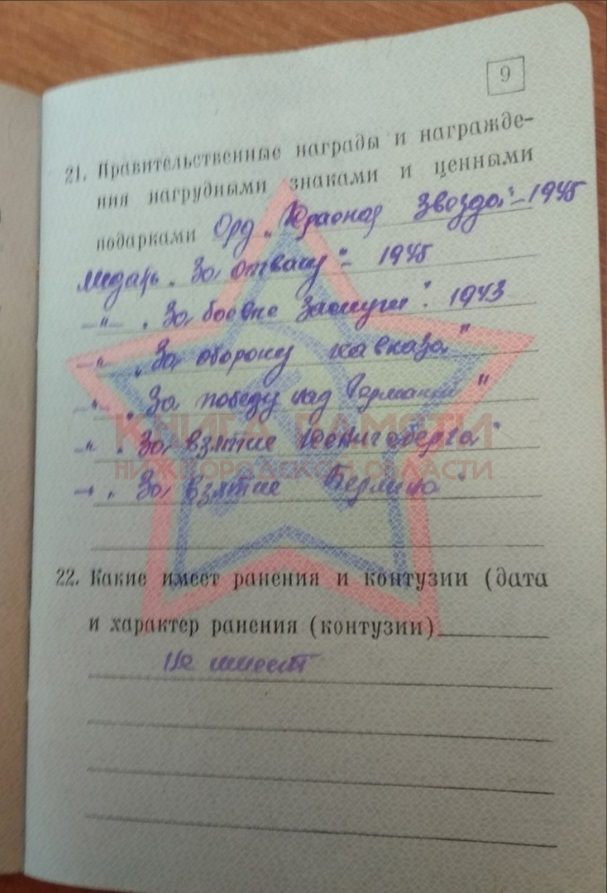 9
21. Правительственные награды и награжде-
ния нагрудными знаками и ценными
подарками Орд „Красная Звезда" - 1945
Медаль „За отвагу" - 1945
—"— „За боевые заслуги". 1943
—"— „За оборону Кавказа"
—"— „За победу над Германией"
—"— „За взятие Кенигсберга"
—"— „За взятие Берлина"
КНИГА ПАМЯТИ
НИЖЕГОРОДСКОЙ ОБЛАСТИ
22. Какие имеет ранения и контузии (дата
и характер ранения (контузии)
Не имеет